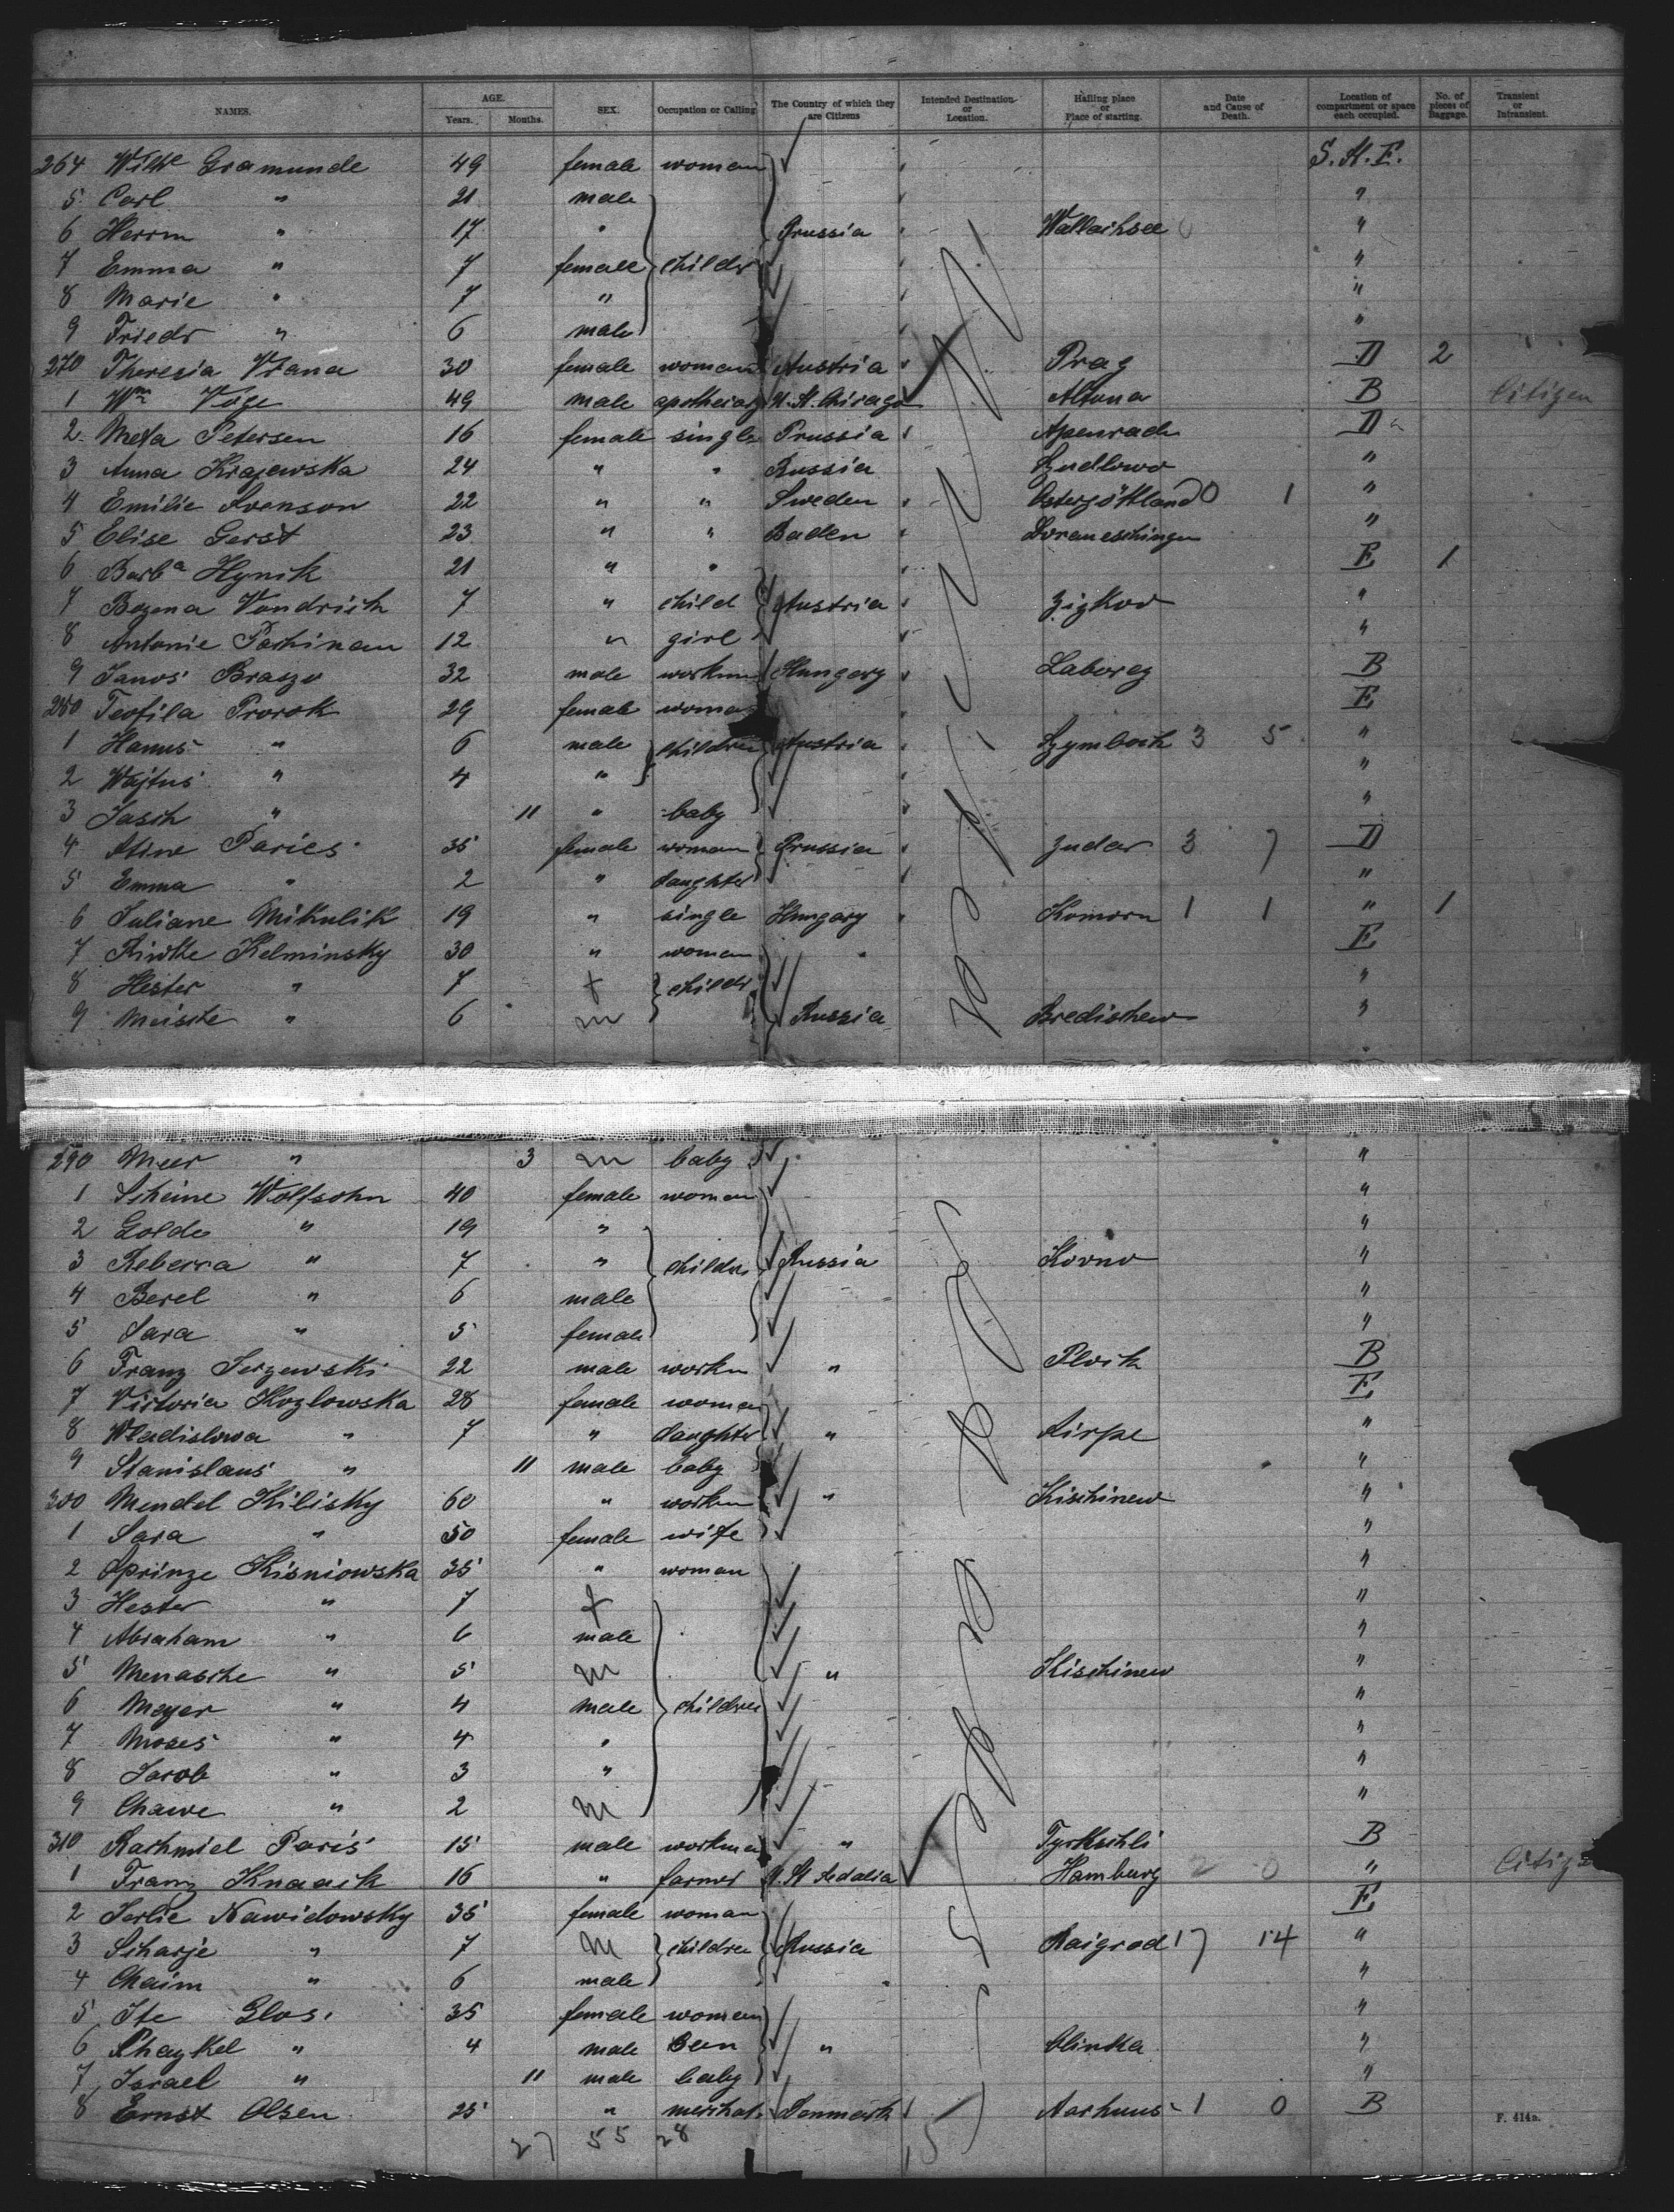 NAMES. AGE. Years. Months. SEX. Occupation or Calling The Country of which they are Citizens Intended Destination or Location. Hailing place or Place of starting. Date and Cause of Death. Location of compartment or space each occupied. No. of pieces of Baggage. Transient or Intransient.
264 Gramunde 49 female woman S. St. E.
5 Carl " 21 male "
6 Herrm " 17 " Prussia Wallachsee "
7 Emma " 7 female childr "
8 Marie " 7 " "
9 Friedr " 6 male "
270 Theresia Vrana 30 female woman Austria Prag D 2
1 Wm Voge 49 male apothecary U. St. Chicago Altona B Citizen
2 Meta Petersen 16 female single Prussia Apenrade D
3 Anna Krajewska 24 " " Russia Szudlowo "
4 Emilie Svenson 22 " " Sweden Ostergöttland 0 1 "
5 Elise Gerst 23 " " Baden "
6 Barba Hynik 21 " " E 1
7 Bozena Vondrich 7 " child Austria Zizkov "
8 Antonie 12 " girl "
9 Janos Braszo 32 male workm Hungary Laborez B
280 Teofila Prorok 29 female woman E
1 Hanus " 6 male children Austria Szymbark 3 5 "
2 Wojtus " 4 " "
3 Jasch " 11 " baby "
4 Stine Paries 35 female woman Prussia Zudar 3 7 D
5 Emma " 2 " daughter "
6 Juliane Mikulik 19 " single Hungary Komorn 1 1 " 1
7 Riwke Kelminsky 30 " woman E
8 Hester " 7 f childr "
9 Meische " 6 m Russia Bredischew "
290 Meer " 3 m baby "
1 Scheine Wolfsohn 40 female woman "
2 Golde " 19 " "
3 Rebecca " 7 " childr Russia Kovno "
4 Berel " 6 male "
5 Sara " 5 female "
6 Franz Jerzewski 22 male workm " Plock B
7 Victoria Kozlowska 28 female woman E
8 Wladislowa " 7 " daughter " Sirpe "
9 Stanislaus " 11 male baby "
300 Mendel Kilisky 60 " workm " Kischinew "
1 Sara " 50 female wife "
2 Sprinze Kisniowska 35 " woman "
3 Hester " 7 f "
4 Abraham " 6 male "
5 Menasche " 5 m " Kischinew "
6 Meyer " 4 male children "
7 Moses " 4 " "
8 Jacob " 3 " "
9 Chawe " 2 m "
310 Rachmiel Paris 15 male workman " Tyrkschli B
1 Franz Knaack 16 " farmer U. St Sedalia Hamburg 2 0 " Citizen
2 Serlie Nawidowsky 35 female woman E
3 Scharje " 7 m children Russia Raigrod 17 14 "
4 Chaim " 6 male "
5 Ite Glos. 35 female woman "
6 Phaykel " 4 male son " Clinka "
7 Israel " 11 male baby "
8 Ernst Olsen 25 " merchat. Denmark Aarhuus 1 0 B
27 55 28 F. 414a.